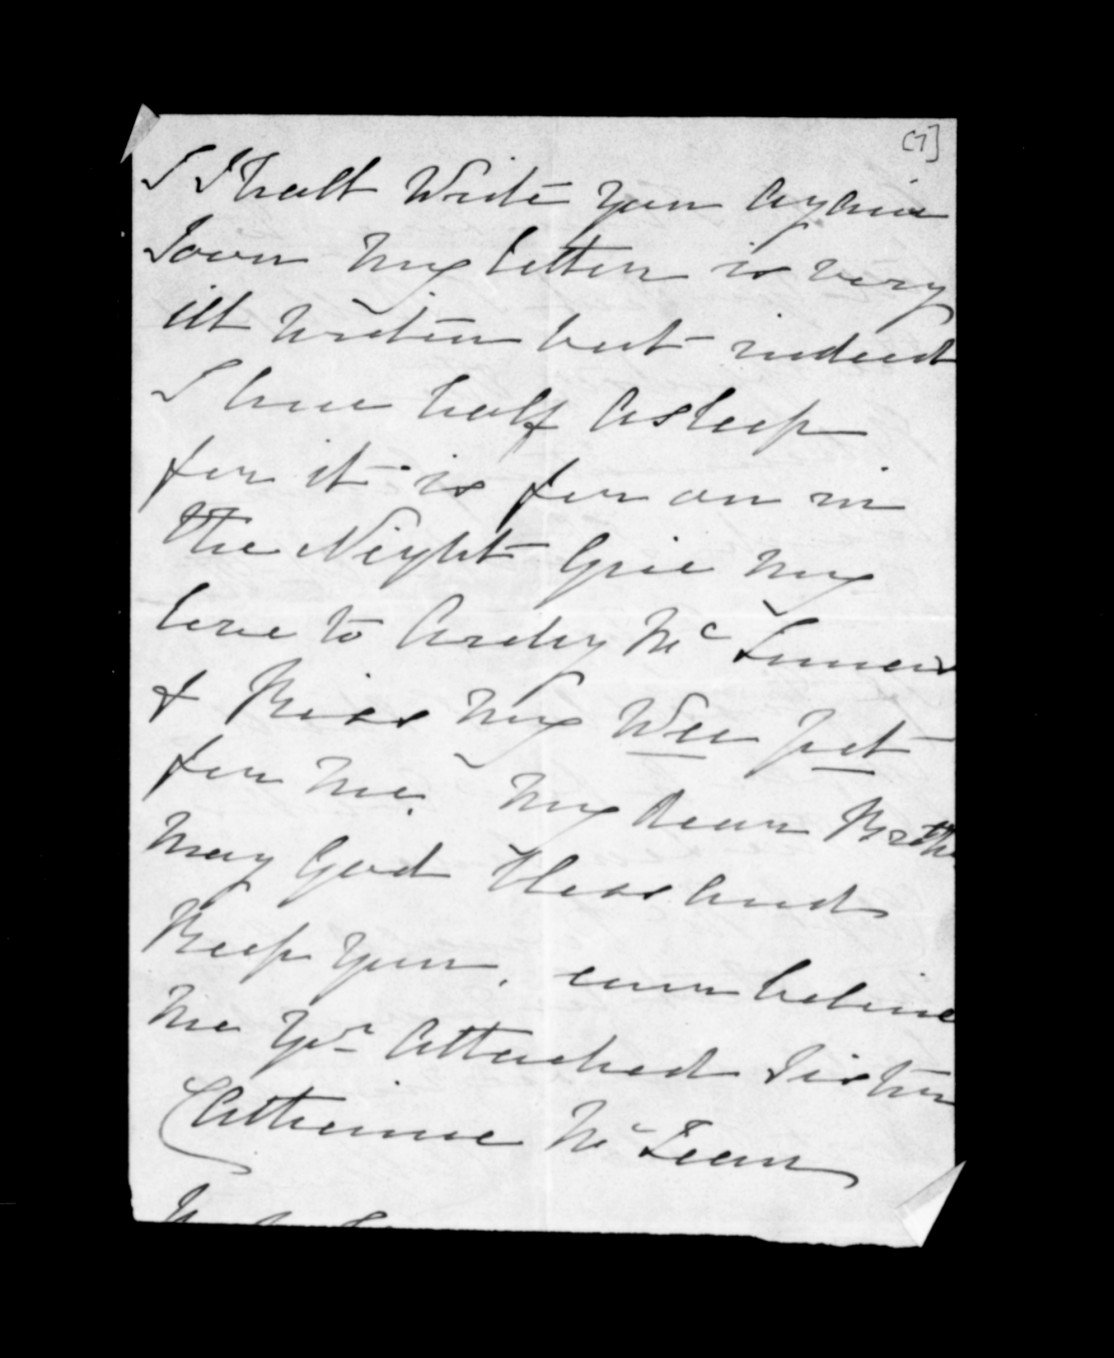 [7]
I Shall Write you again
Soon My letter is very
ill written but indeed
I have half Asleep
for it is far on in
the Night Give my
love to Archy Mc
& Kiss My Wee pet
for me. My dear Brother
May God bless and
Keep you. ever believe
me Yr Attached Sister
Catherine Mc Lean